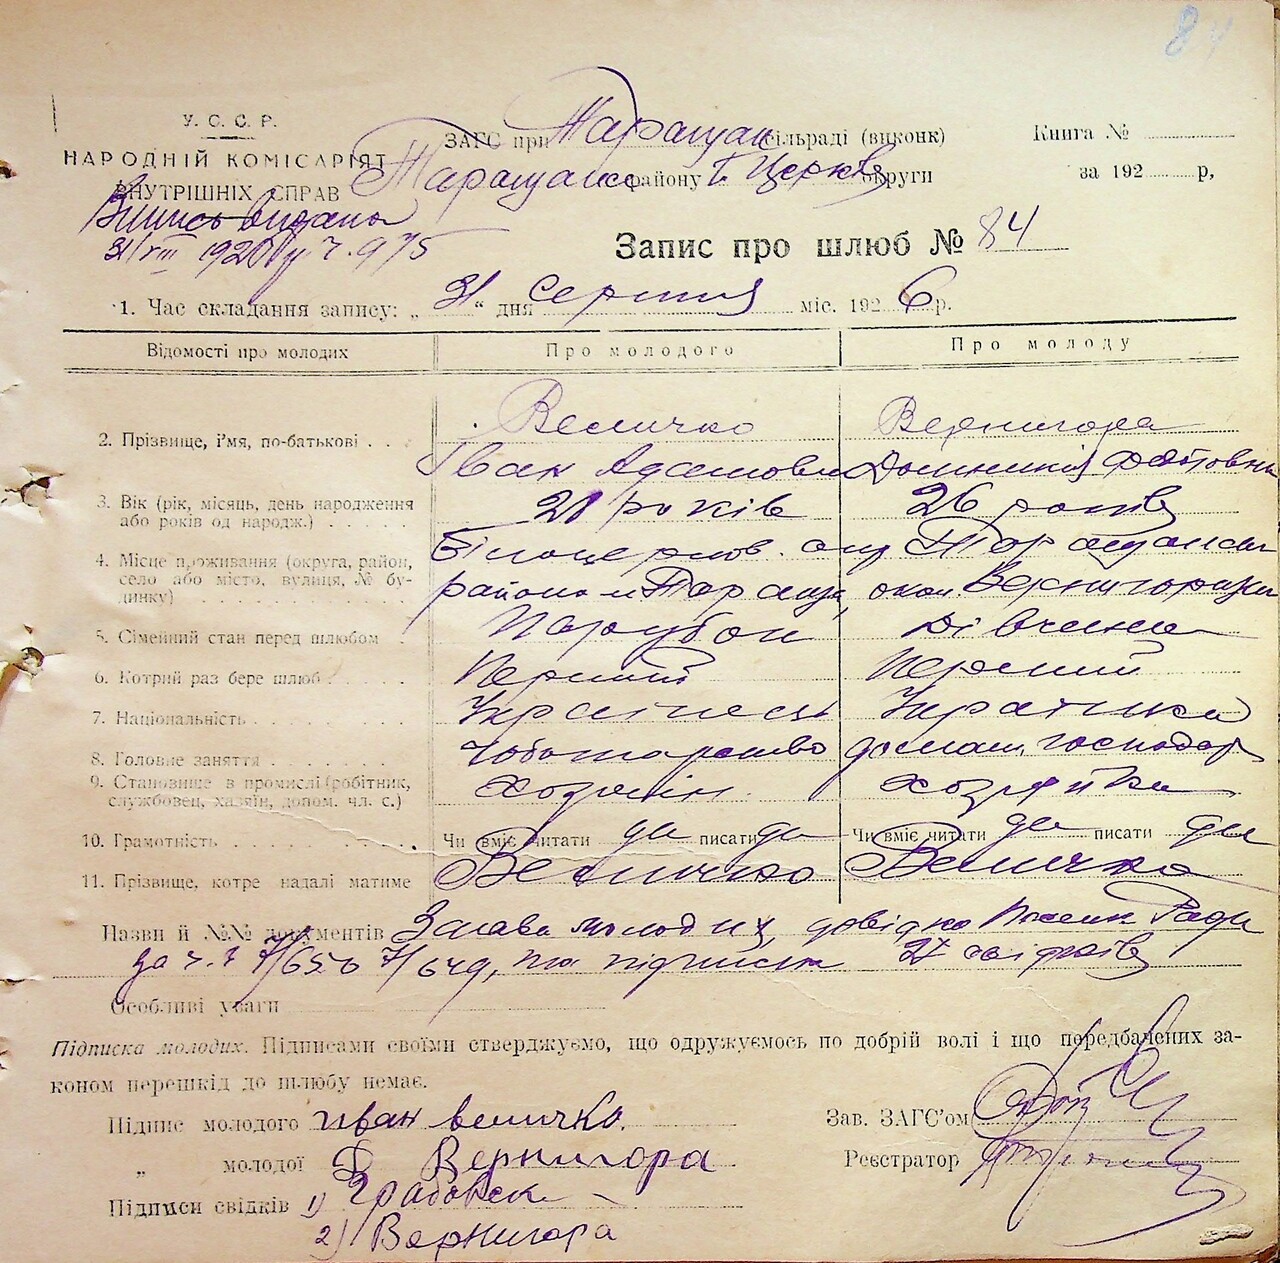 84
У. С. С. Р.
НАРОДНІЙ КОМІСАРІЯТ
ВНУТРІШНІХ СПРАВ
ЗАГС при Таращан сільраді (виконк)
Таращансь району Б. Церків округи
Книга №
за 192 р,
Випись видана
31/VIII 1926 р ч. 975
Запис про шлюб № 84
1. Час складання запису: „31“ дня Серпня міс. 1926 р.
Відомості про молодих Про молодого Про молоду
2. Прізвище, і'мя, по-батькові Величко Вернигора
Іван Адамович Домникія Федотовна
3. Вік (рік, місяць, день народження 21 років 26 років
або років од народж.)
4. Місце проживання (округа, район, Білоцерков. окр Таращанськ
село або місто, вулиця, № бу- района м Тараща, окол. Вернигорівка
динку)
5. Сімейний стан перед шлюбом Парубок Дівчина
6. Котрий раз бере шлюб Перший Перший
7. Національність Українець Українка
8. Головне заняття Чоботарство домаш. господар
9. Становище в промислі (робітник, хозяїн. хозяйка
службовець, хазяїн, допом. чл. с.)
10. Грамотність Чи вміє читати да писати да Чи вміє читати да писати да
11. Прізвище, котре надалі матиме Величко Величко
Назви й №№ документів Заява молодих, довідка Ради
за ч. ч 7/650 7/649, та підписка 2х свідків
Особливі уваги
Підписка молодих. Підписами своїми стверджуємо, що одружуємось по добрій волі і що передбачених за-
коном перешкід до шлюбу немає.
Підпис молодого иван величко.
Зав. ЗАГС'ом
„ молодої Д Вернигора
Реєстратор
Підписи свідків 1) Грабовск
2) Вернигора